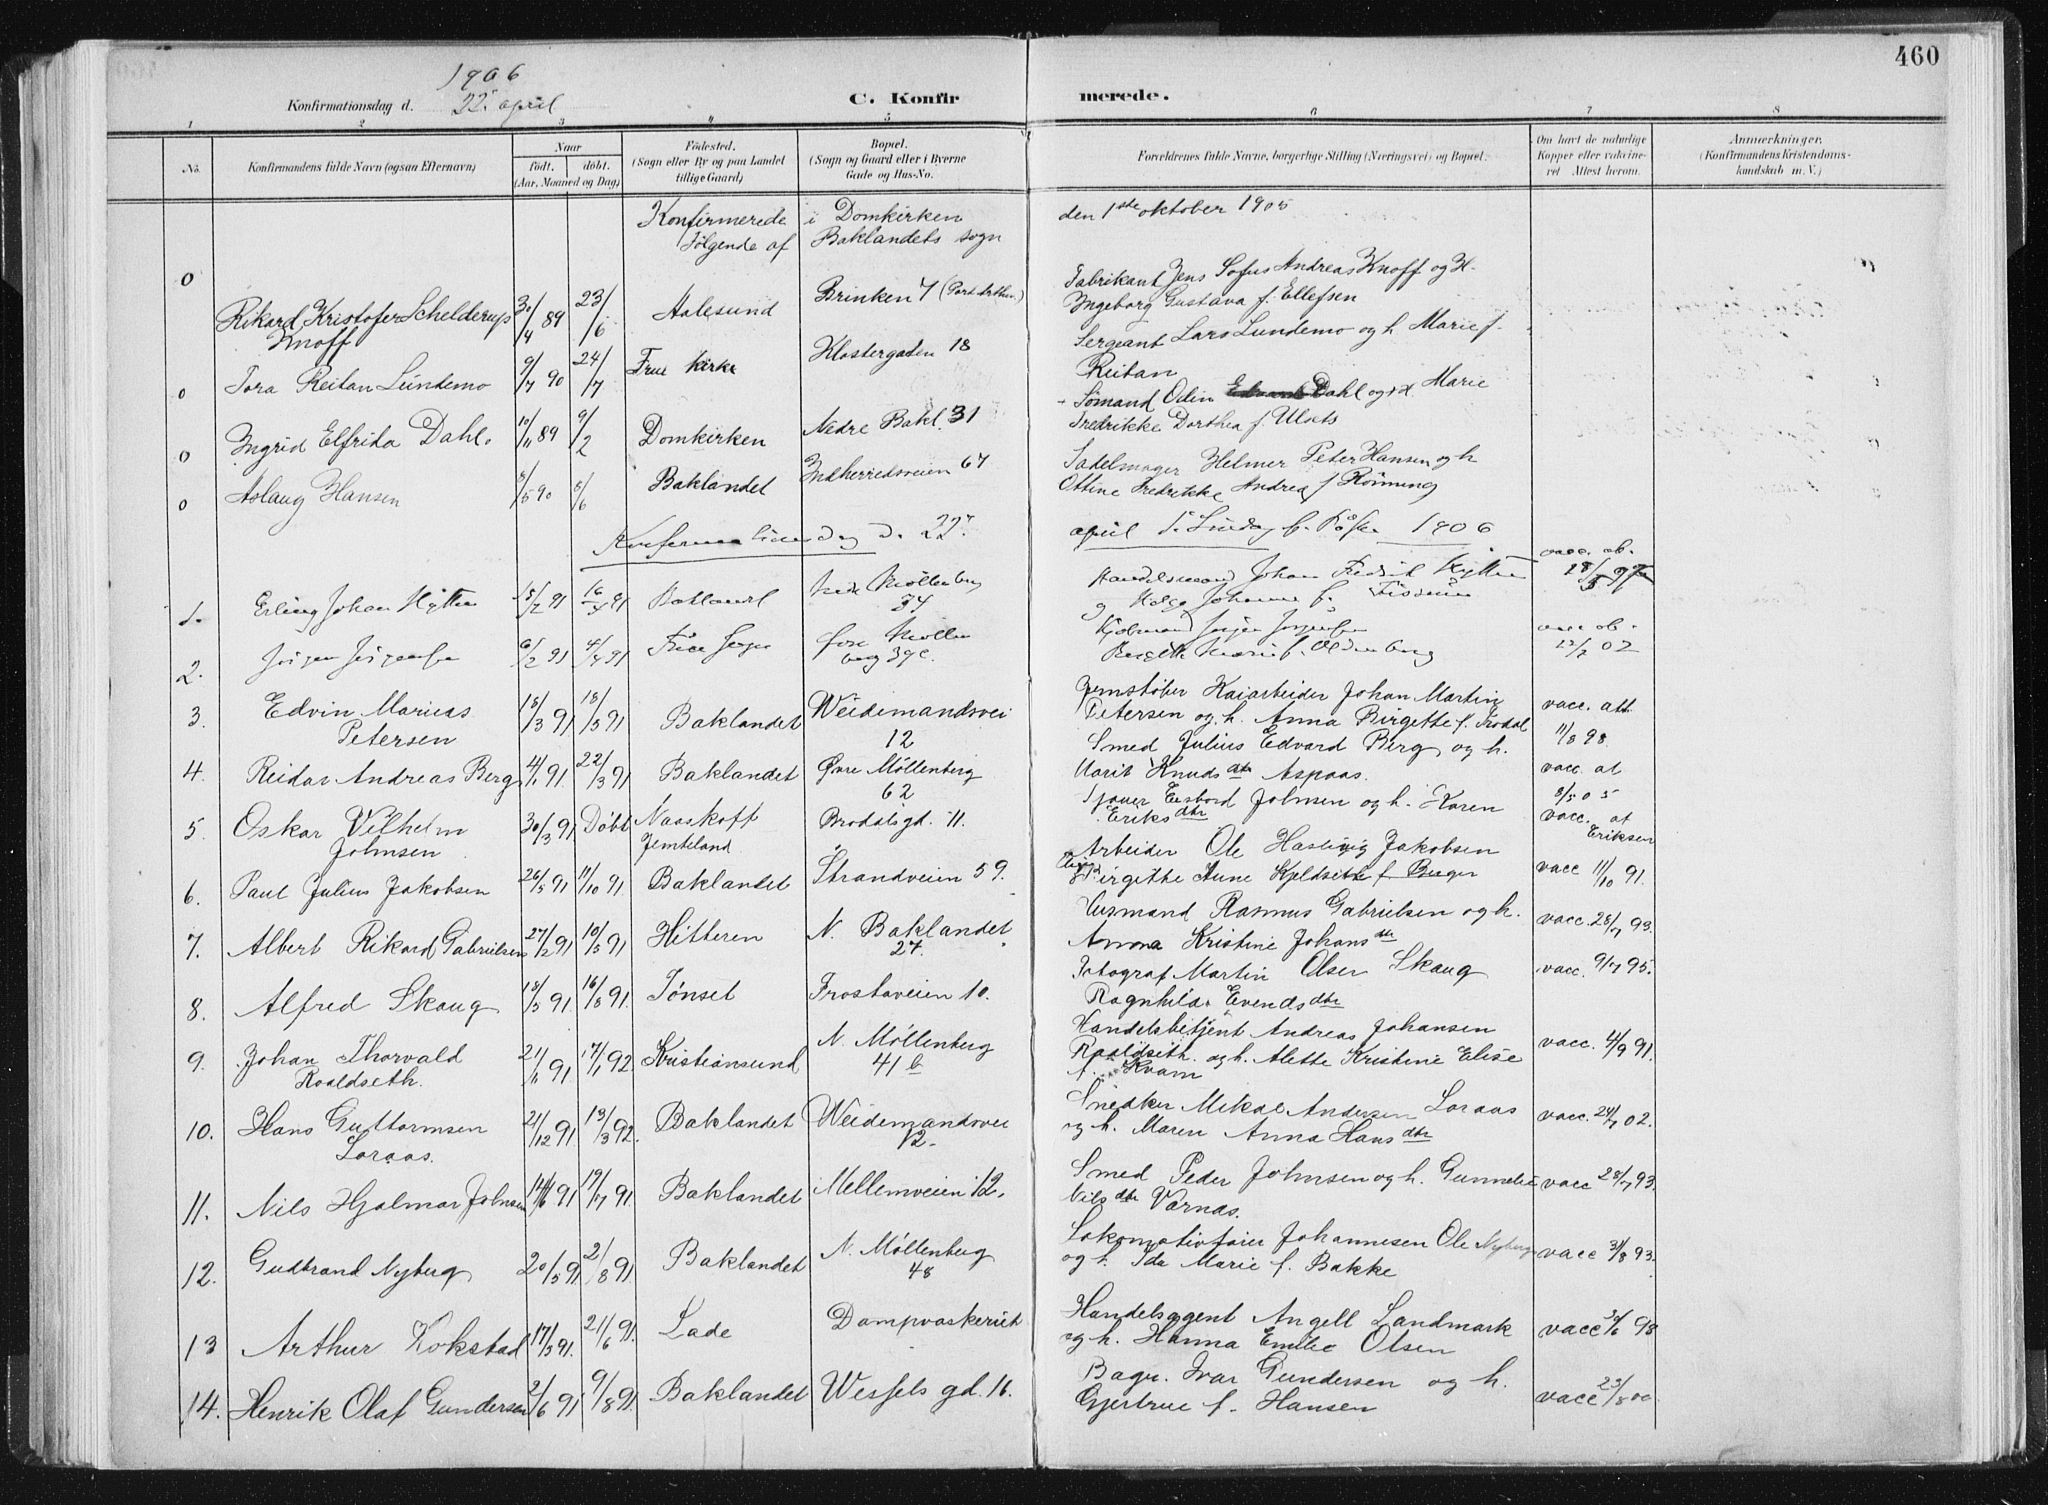 460
1906
Konfirmationsdag d. 22. april
C. Konfirmerede.
1 2 3 4 5 6 7 8
No.
Konfirmandens fulde Navn (ogsaa Efternavn)
Naar
født. døbt.
(Aar, Maaned og Dag)
Fødested.
(Sogn eller By og paa Landet
tillige Gaard)
Bopæl.
(Sogn og Gaard eller i Byerne
Gade og Hus-No.
Forældrenes fulde Navne, borgerlige Stilling (Næringsvei) og Bopæl.
Om havt de naturlige
Kopper eller vakcine-
ret Attest herom.
Anmærkninger.
(Konfirmandens Kristendoms-
kundskab m. V.)
Konfirmerede i Domkirken den 1ste oktober 1905
følgende af Baklandets sogn
0 Rikard Kristofer Schelderup Knoff 30/4 89 23/6 Aalesund Brinken 7 (Port Arthur) Fabrikant Jens Sofus Andreas Knoff og H.
Ingeborg Gustava f. Ellefsen
0 Tora Reitan Lundemo 9/7 90 24/7 Frue Kirke Klostergaten 18 Sergeant Lars Lundemo og h Marie f.
Reitan
0 Ingrid Elfrida Dahl. 10/11 89 9/2 Domkirken Nedre Bakl. 31 Sømand Odin Dahl og Marie
Fredrikke Dorthea f.
0 Aslaug Hansen 8/5 90 8/6 Baklandet Indherredsveien 67 Sadelmager Helmer Peter Hansen og h
Ottine Fredrikke Andrea f Rönning
Konfirmationsdag d. 22. april 1. Søndag e. Påske 1906
1. Erling Johan Hytten 15/2 91 16/4 91 Baklandet Nedre Møllenberg
34 Handelsmand Johan Fredrik Hytten
og Helga Johanne f. vacc. ob.
2. Jørgen Jørgensen 6/2 91 4/4 91 Øvre Møllen
berg 39c. Jørgen Jørgensen
Birgitte Marie f. Oldenborg vacc ob. 22/7 02
3. Edvin Marius
Petersen 18/3 91 18/5 91 Baklandet Weidemandsvei
12 Jernstøber Kaiarbeider Johan Martin
Petersen og h. Anna Birgette f. vacc. att.
11/8 98.
4. Reidar Andreas Berg 4/1 91 22/3 91 Baklandet Øvre Møllenberg
62 Smed Julius Edvard Berg og h.
Marit Knuds dtr Aspaas. vacc. at
8/5 05
5. Oskar Vilhelm
Johnsen 30/3 91 Døbt Naaskott
Jemteland Brodalsgd. 11. Johnsen og h. Karen
Eriks dtr vacc. af
Eriksen
6. Paul Julius Jakobsen 26/5 91 11/10 91 Baklandet Strandveien 59. Arbeider Ole Jakobsen
Birgitte Aune vacc 11/10 91.
7. Albert Rikard Gabrielsen 27/2 91 10/5 91 Hitteren N. Baklandet
27. Husmand Rasmus Gabrielsen og h.
Anna Kristine Johans dtr vacc. 28/7 93.
8. Alfred Skaug 18/3 91 16/8 91. Tönset Frostaveien 10. Fotograf Martin Olsen Skaug
Ragnhild Evends dtr vacc. 9/7 95.
9. Johan Thorvald
Roaldseth. 21/11 91 17/1 92 Kristiansund N. Møllenberg
41 b Handelsbetjent Andreas Johansen
Roaldseth og h. Alette Kristine Elise
f. Kvam vacc. 4/9 91.
10. Hans Guttormsen
Loraas. 21/12 91 13/3 92. Baklandet Weidemandsvei
12. Snedker Mikal Andersen Loraas
og h. Maren Anna Hans dtr vacc. 24/7 02.
11. Nils Hjalmar Johnsen 14/6 91 19/7 91. Baklandet Mellemveien 12. Smed Peder Johnsen og h. Gunnelie
Nils dtr Varnas. vacc 28/7 93.
12. Gudbrand Nyberg 20/5 91 2/8 91 Baklandet N. Møllenberg
48 Lokomotivfører Johannesen Ole Nyberg
og h. Ida Marie f. Bakke vacc 31/8 93.
13 Arthur Kokstad 17/3 91. 21/6 91. Lade Dampvaskeriet Handelsagent Angell Landmark
og h. Hanna Emilie Olsen vacc 98
14. Henrik Olaf Gundersen 2/6 91 9/8 91. Baklandet Wessels gd. 16. Bagr. Ivar Gundersen og h.
Gjertrue f. Hansen vacc 23/8 00